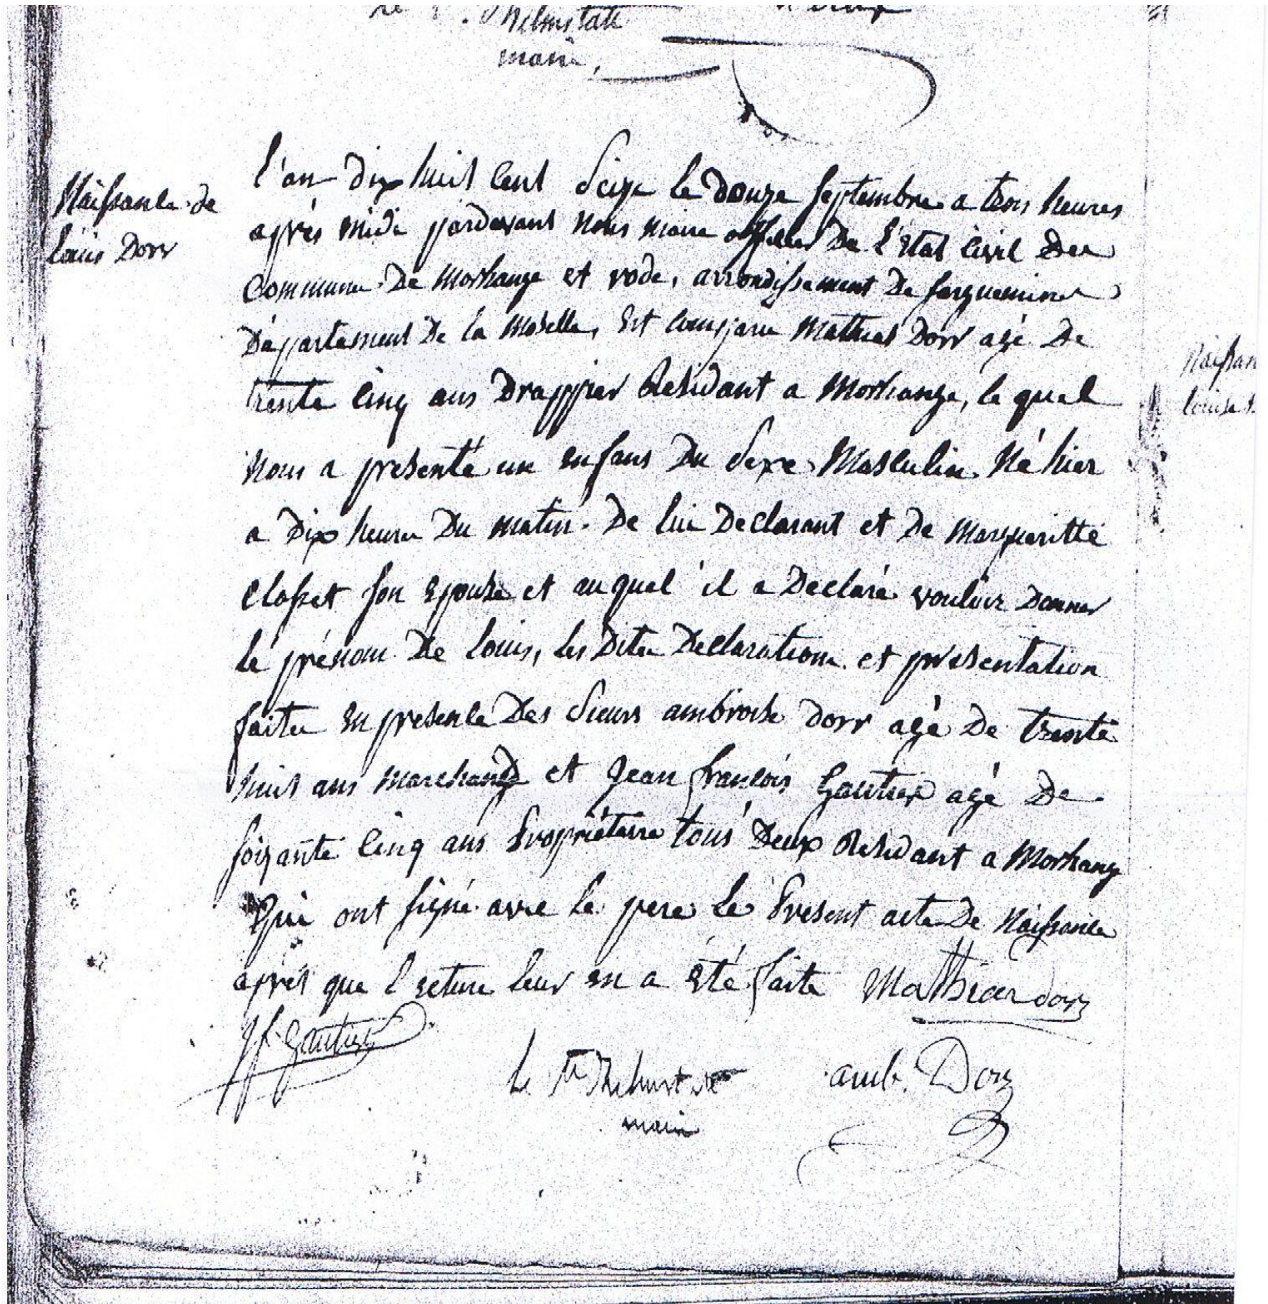 helmstatt
maire,
Naissance de
Louis Dorr
L'an dix huit cent Seize le douze Septembre a trois heures
après midi pardevant nous maire officier De l'Etat Civil Des
Commune De Morhange et rode, arrondissement De sarguemines
Département De la Moselle, est comparu Mathias Dorr agé De
trente cinq ans Drappier Residant a Morhange, le quel
nous a presenté un enfans Du Sexe Masculin Né hier
a Dix heures Du matin. De lui Declarant et De Margueritte
Closset son epouse et auquel il a Declaré vouloir Donner
le prénom De Louis, les Dites Declarations et presentation
faites en presence Des Sieurs ambroise dorr agé De trente
huit ans Marchand et Jean françois Gautier agé De
soixante cinq ans Propriétaire tous Deux Residant a Morhange
Qui ont signé avec le pere le Present acte De Naissance
après que lecture leur en a eté faite Mathias dorr
Jf. Gautier
amb. Dorr
maire
Naissan
louise